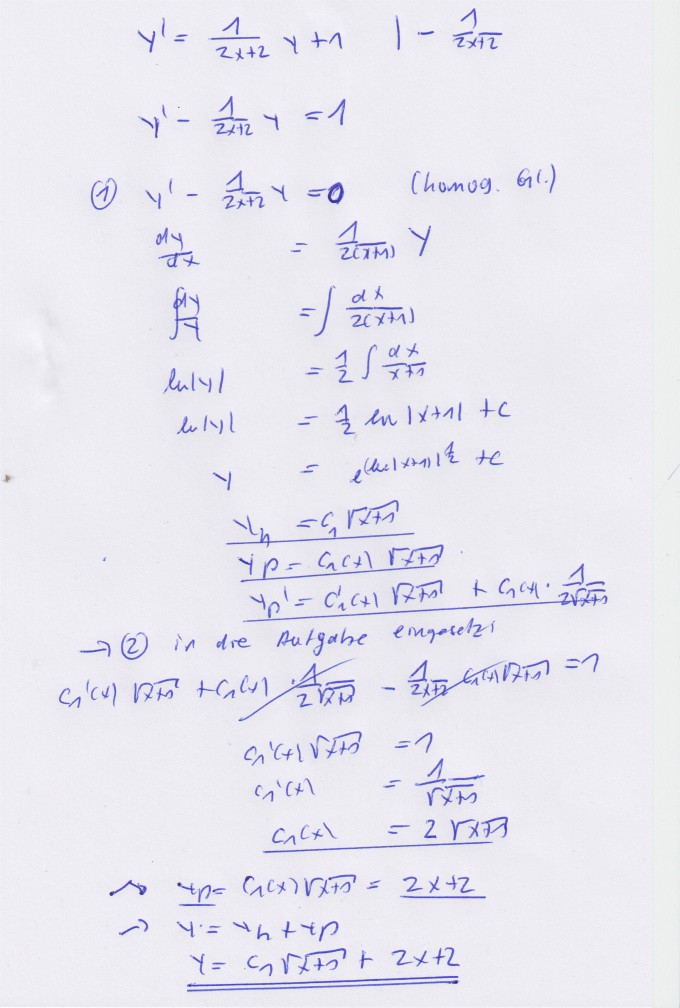 y' = 1/(2x+2) y + 1 | - 1/(2x+2)
y' - 1/(2x+2) y = 1
① y' - 1/(2x+2) y = 0 (homog. Gl.)
dy/dx = 1/(2(x+1)) y
∫ dy/y = ∫ dx/(2(x+1))
ln|y| = 1/2 ∫ dx/(x+1)
ln|y| = 1/2 ln|x+1| + C
y = e^(ln|x+1|)^(1/2) + C
y_h = C₁ √(x+1)
y_p = C₁(x) √(x+1)
y_p' = C₁'(x) √(x+1) + C₁(x) · 1/(2√(x+1))
→ ② in die Aufgabe eingesetzt
C₁'(x) √(x+1) + C₁(x) · 1/(2√(x+1)) - 1/(2x+2) C₁(x) √(x+1) = 1
C₁'(x) √(x+1) = 1
C₁'(x) = 1/√(x+1)
C₁(x) = 2 √(x+1)
→ y_p = C₁(x) √(x+1) = 2x+2
→ y = y_h + y_p
y = C₁ √(x+1) + 2x+2